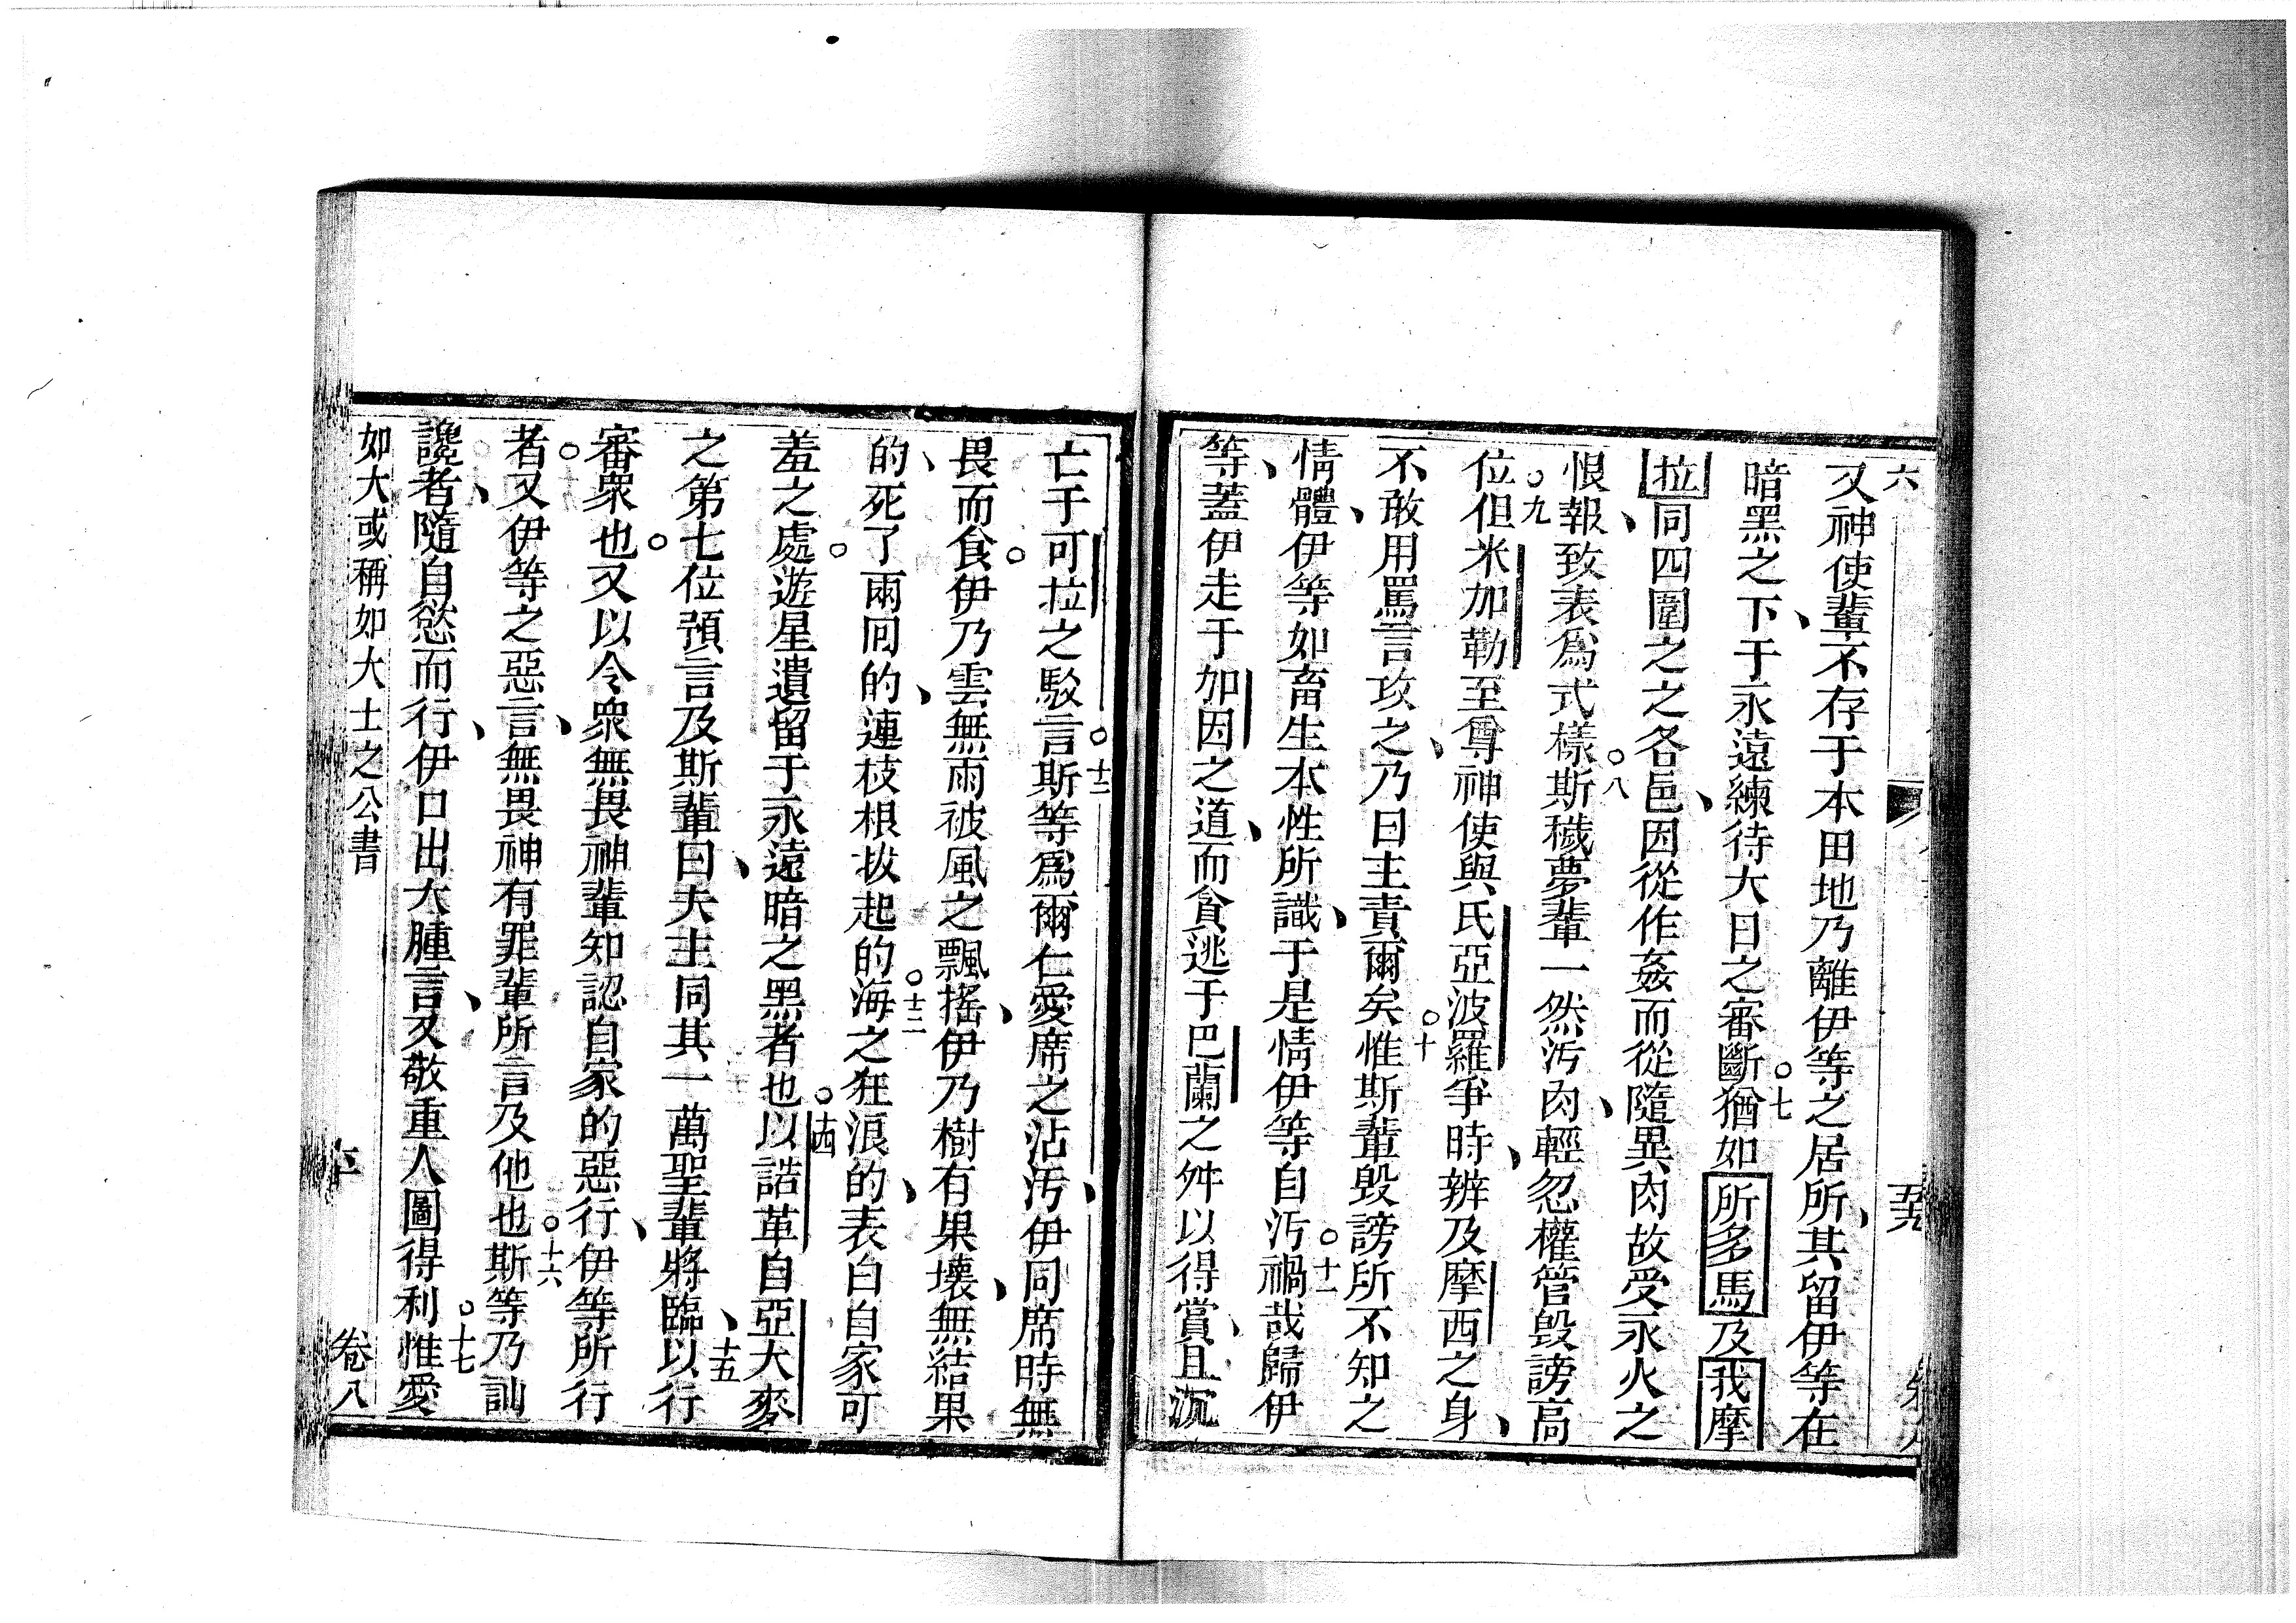 六
又神使輩不存于本田地乃離伊等之居所、其留伊等在
暗黑之下、于永遠練待大日之審斷○七猶如所多馬及我摩
拉同四圍之之各邑、因從作姦而從隨異肉故受永火之
恨報、致表爲式樣○八斯穢夢輩一然污肉、輕忽權管毀謗高
位○九但米加勒至尊神使與氏亞波羅爭時、辨及摩西之身、
不敢用罵言攻之、乃曰主責爾矣○十惟斯輩毀謗所不知之
情體、伊等如畜生本性所識、于是情伊等自污○十一禍哉歸伊
等、蓋伊走于加因之道、而貪逃于巴蘭之舛以得賞、且沉
亡于可拉之駁言○十二斯等爲爾仁愛席之沾污、伊同席時無
畏而食○伊乃雲無雨被風之飄搖、伊乃樹有果壞、無結果
的、死了兩回的、連枝根拔起的○十三海之狂浪的、表白自家可
羞之處○遊星遺留于永遠暗之黑者也○十四以諾革自亞大麥
之第七位預言及斯輩曰、夫主同其一萬聖輩將臨、十五以行
審衆也○又以令衆無畏神輩知認自家的惡行、伊等所行
者○又伊等之惡言、無畏神有罪輩所言及他也○十六斯等乃訕
讒者、隨自慾而行、伊口出大腫言、又敬重人圖得利○十七惟愛
如大或稱如大士之公書
卷八